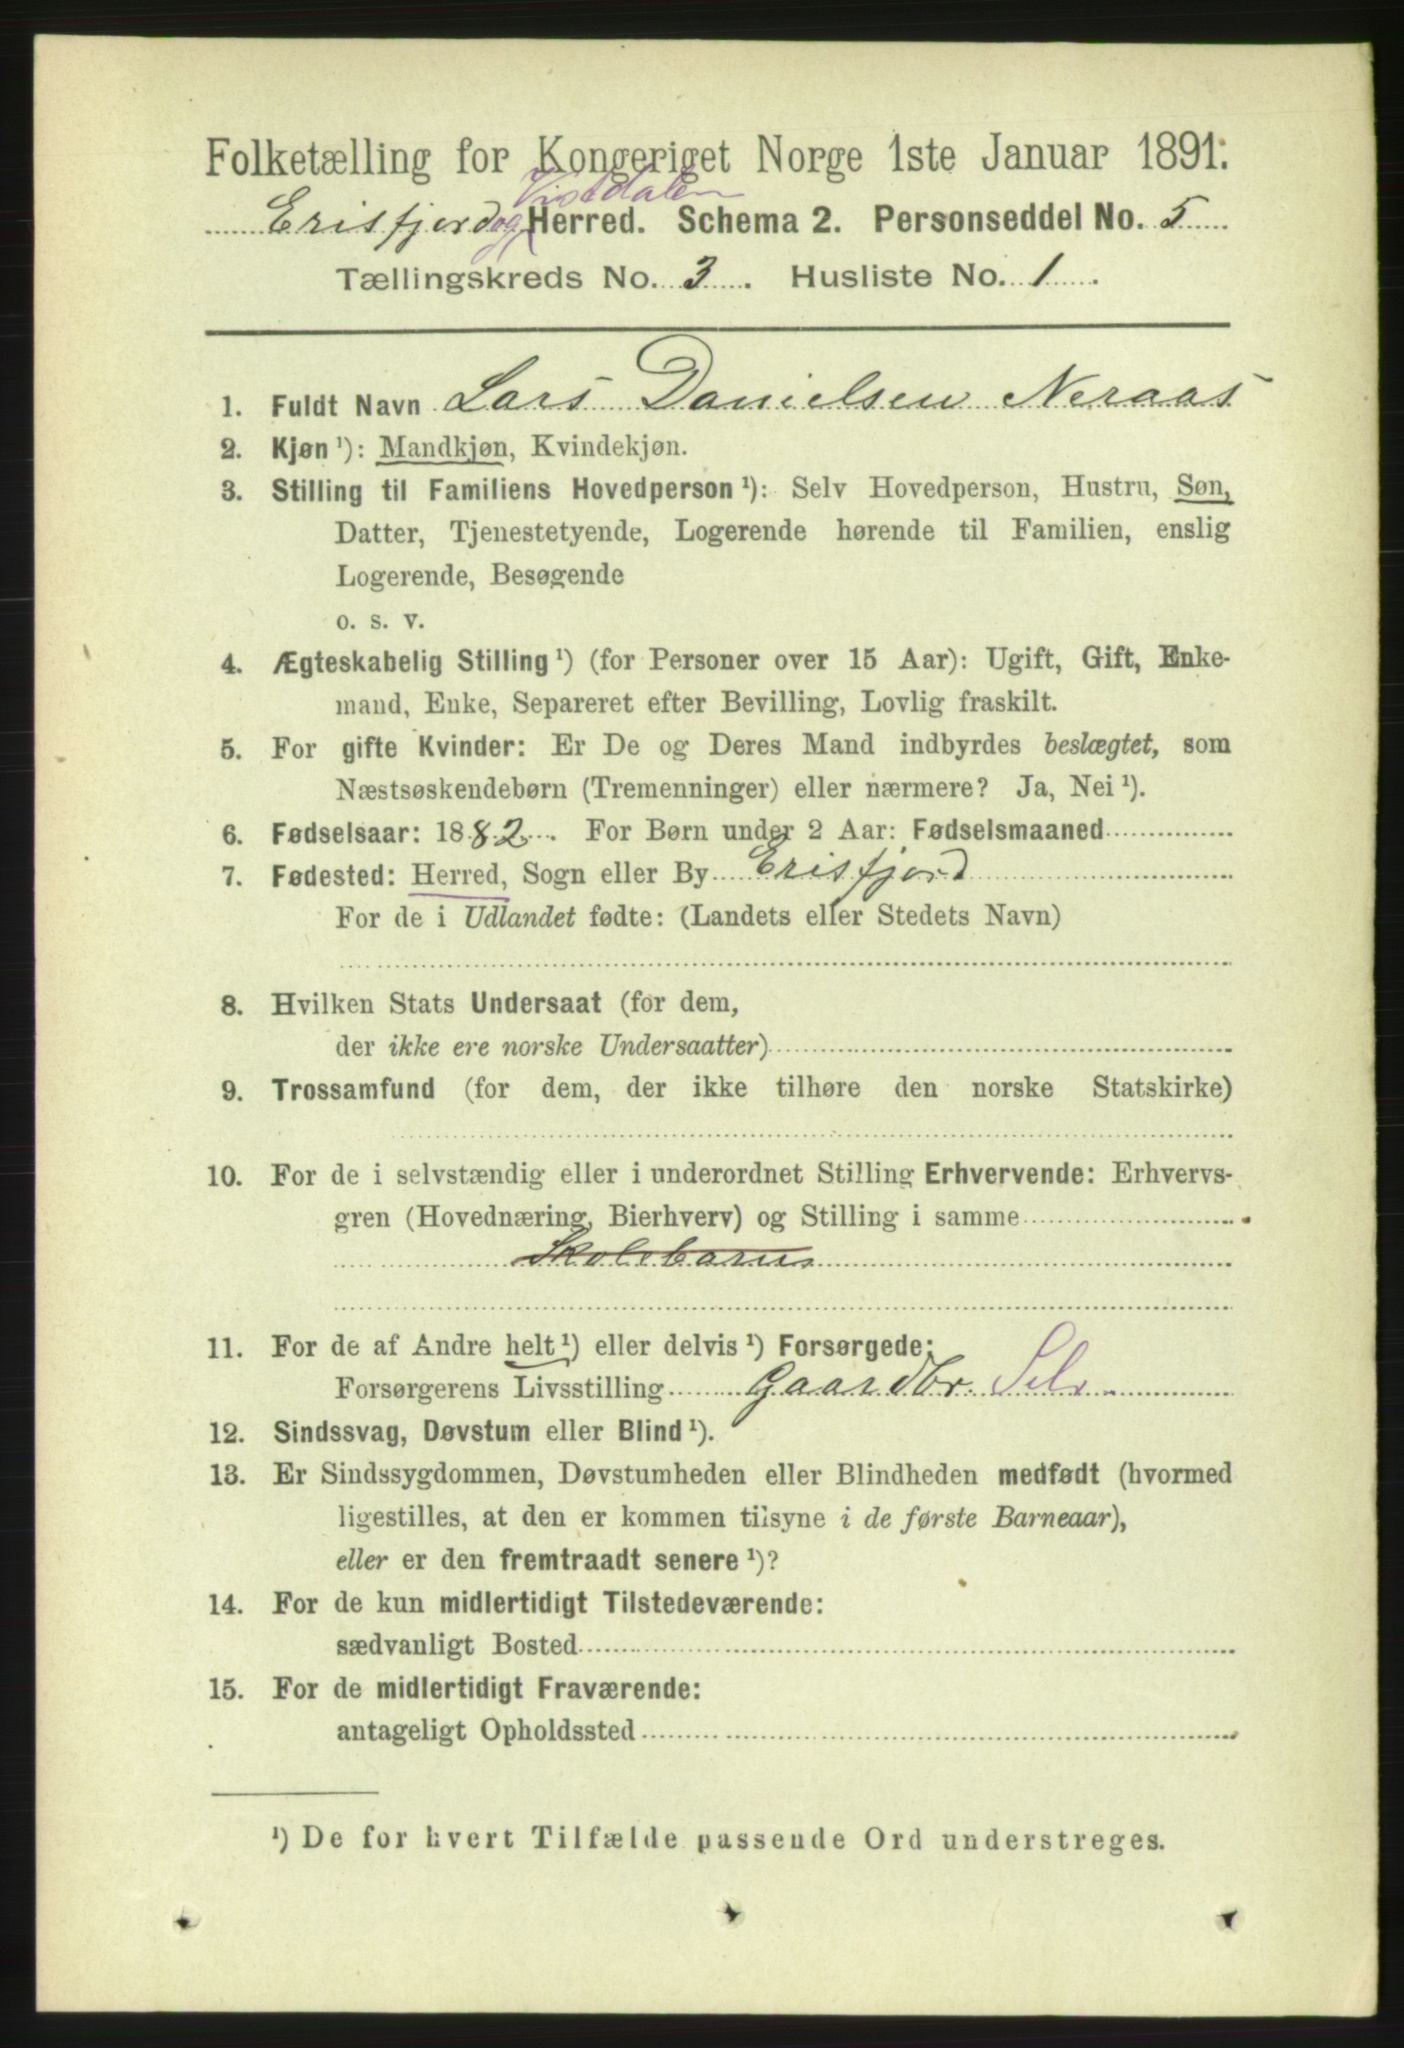 Folketælling for Kongeriget Norge 1ste Januar 1891.
Vistdalen
Erisfjord og Herred. Schema 2. Personseddel No. 5
Tællingskreds No. 3. Husliste No. 1.
1. Fuldt Navn Lars Danielsen Neraas
2. Kjøn ¹): Mandkjøn, Kvindekjøn.
3. Stilling til Familiens Hovedperson ¹): Selv Hovedperson, Hustru, Søn,
Datter, Tjenestetyende, Logerende hørende til Familien, enslig
Logerende, Besøgende
o. s. v.
4. Ægteskabelig Stilling ¹) (for Personer over 15 Aar): Ugift, Gift, Enke-
mand, Enke, Separeret efter Bevilling, Lovlig fraskilt.
5. For gifte Kvinder: Er De og Deres Mand indbyrdes beslægtet, som
Næstsøskendebørn (Tremenninger) eller nærmere? Ja, Nei ¹).
6. Fødselsaar: 1882. For Børn under 2 Aar: Fødselsmaaned
7. Fødested: Herred, Sogn eller By Erisfjord
For de i Udlandet fødte: (Landets eller Stedets Navn)
8. Hvilken Stats Undersaat (for dem,
der ikke ere norske Undersaatter)
9. Trossamfund (for dem, der ikke tilhøre den norske Statskirke)
10. For de i selvstændig eller i underordnet Stilling Erhvervende: Erhvervs-
gren (Hovednæring, Bierhverv) og Stilling i samme
Skolebarns
11. For de af Andre helt ¹) eller delvis ¹) Forsørgede:
Forsørgerens Livsstilling Gaardbr. Selv
12. Sindssvag, Døvstum eller Blind ¹).
13. Er Sindssygdommen, Døvstumheden eller Blindheden medfødt (hvormed
ligestilles, at den er kommen tilsyne i de første Barneaar),
eller er den fremtraadt senere ¹)?
14. For de kun midlertidigt Tilstedeværende:
sædvanligt Bosted
15. For de midlertidigt Fraværende:
antageligt Opholdssted
¹) De for hvert Tilfælde passende Ord understreges.